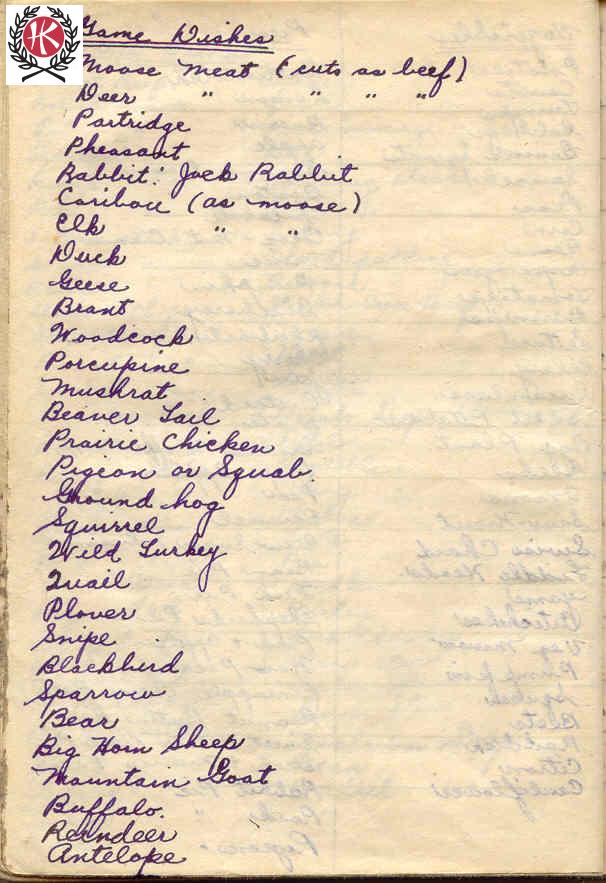 Game Dishes
Moose meat (cuts as beef)
Deer " " " "
Partridge
Pheasant
Rabbit: Jack Rabbit
Caribou (as moose)
Elk " "
Duck
Geese
Brant
Woodcock
Porcupine
Muskrat
Beaver Tail
Prairie Chicken
Pigeon or Squab.
Ground hog
Squirrel
Wild Turkey
Quail
Plover
Snipe
Blackbird
Sparrow
Bear
Big Horn Sheep
Mountain Goat
Buffalo.
Reindeer
Antelope